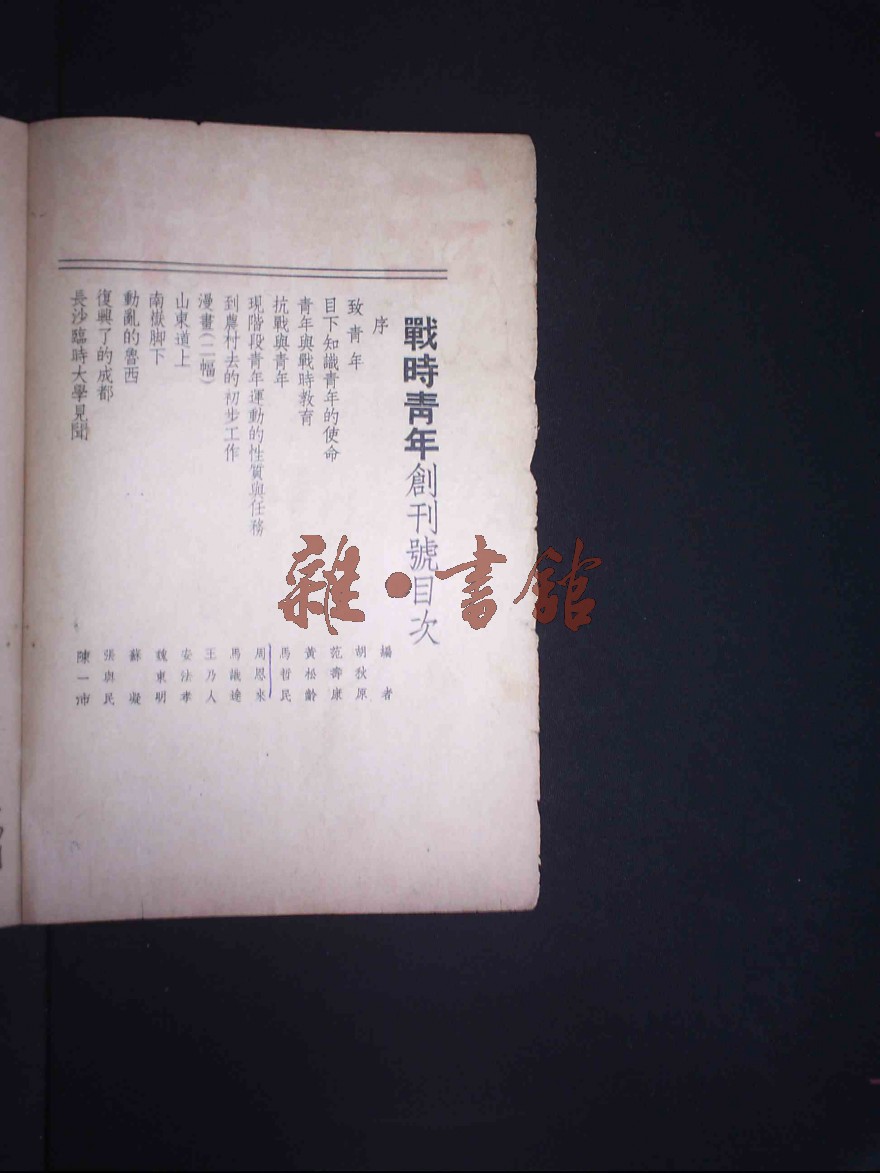 戰時青年創刊號目次
序 編者
致青年 胡秋原
目下知識青年的使命 范壽康
青年與戰時教育 黃松齡
抗戰與青年 馬哲民
現階段青年運動的性質與任務 周恩來
到農村去的初步工作 馬識途
漫畫(二幅) 王乃人
山東道上 安法孝
南嶽脚下 魏東明
動亂的魯西 蘇凝
復興了的成都 張與民
長沙臨時大學見聞 陳一沛
雜·書館